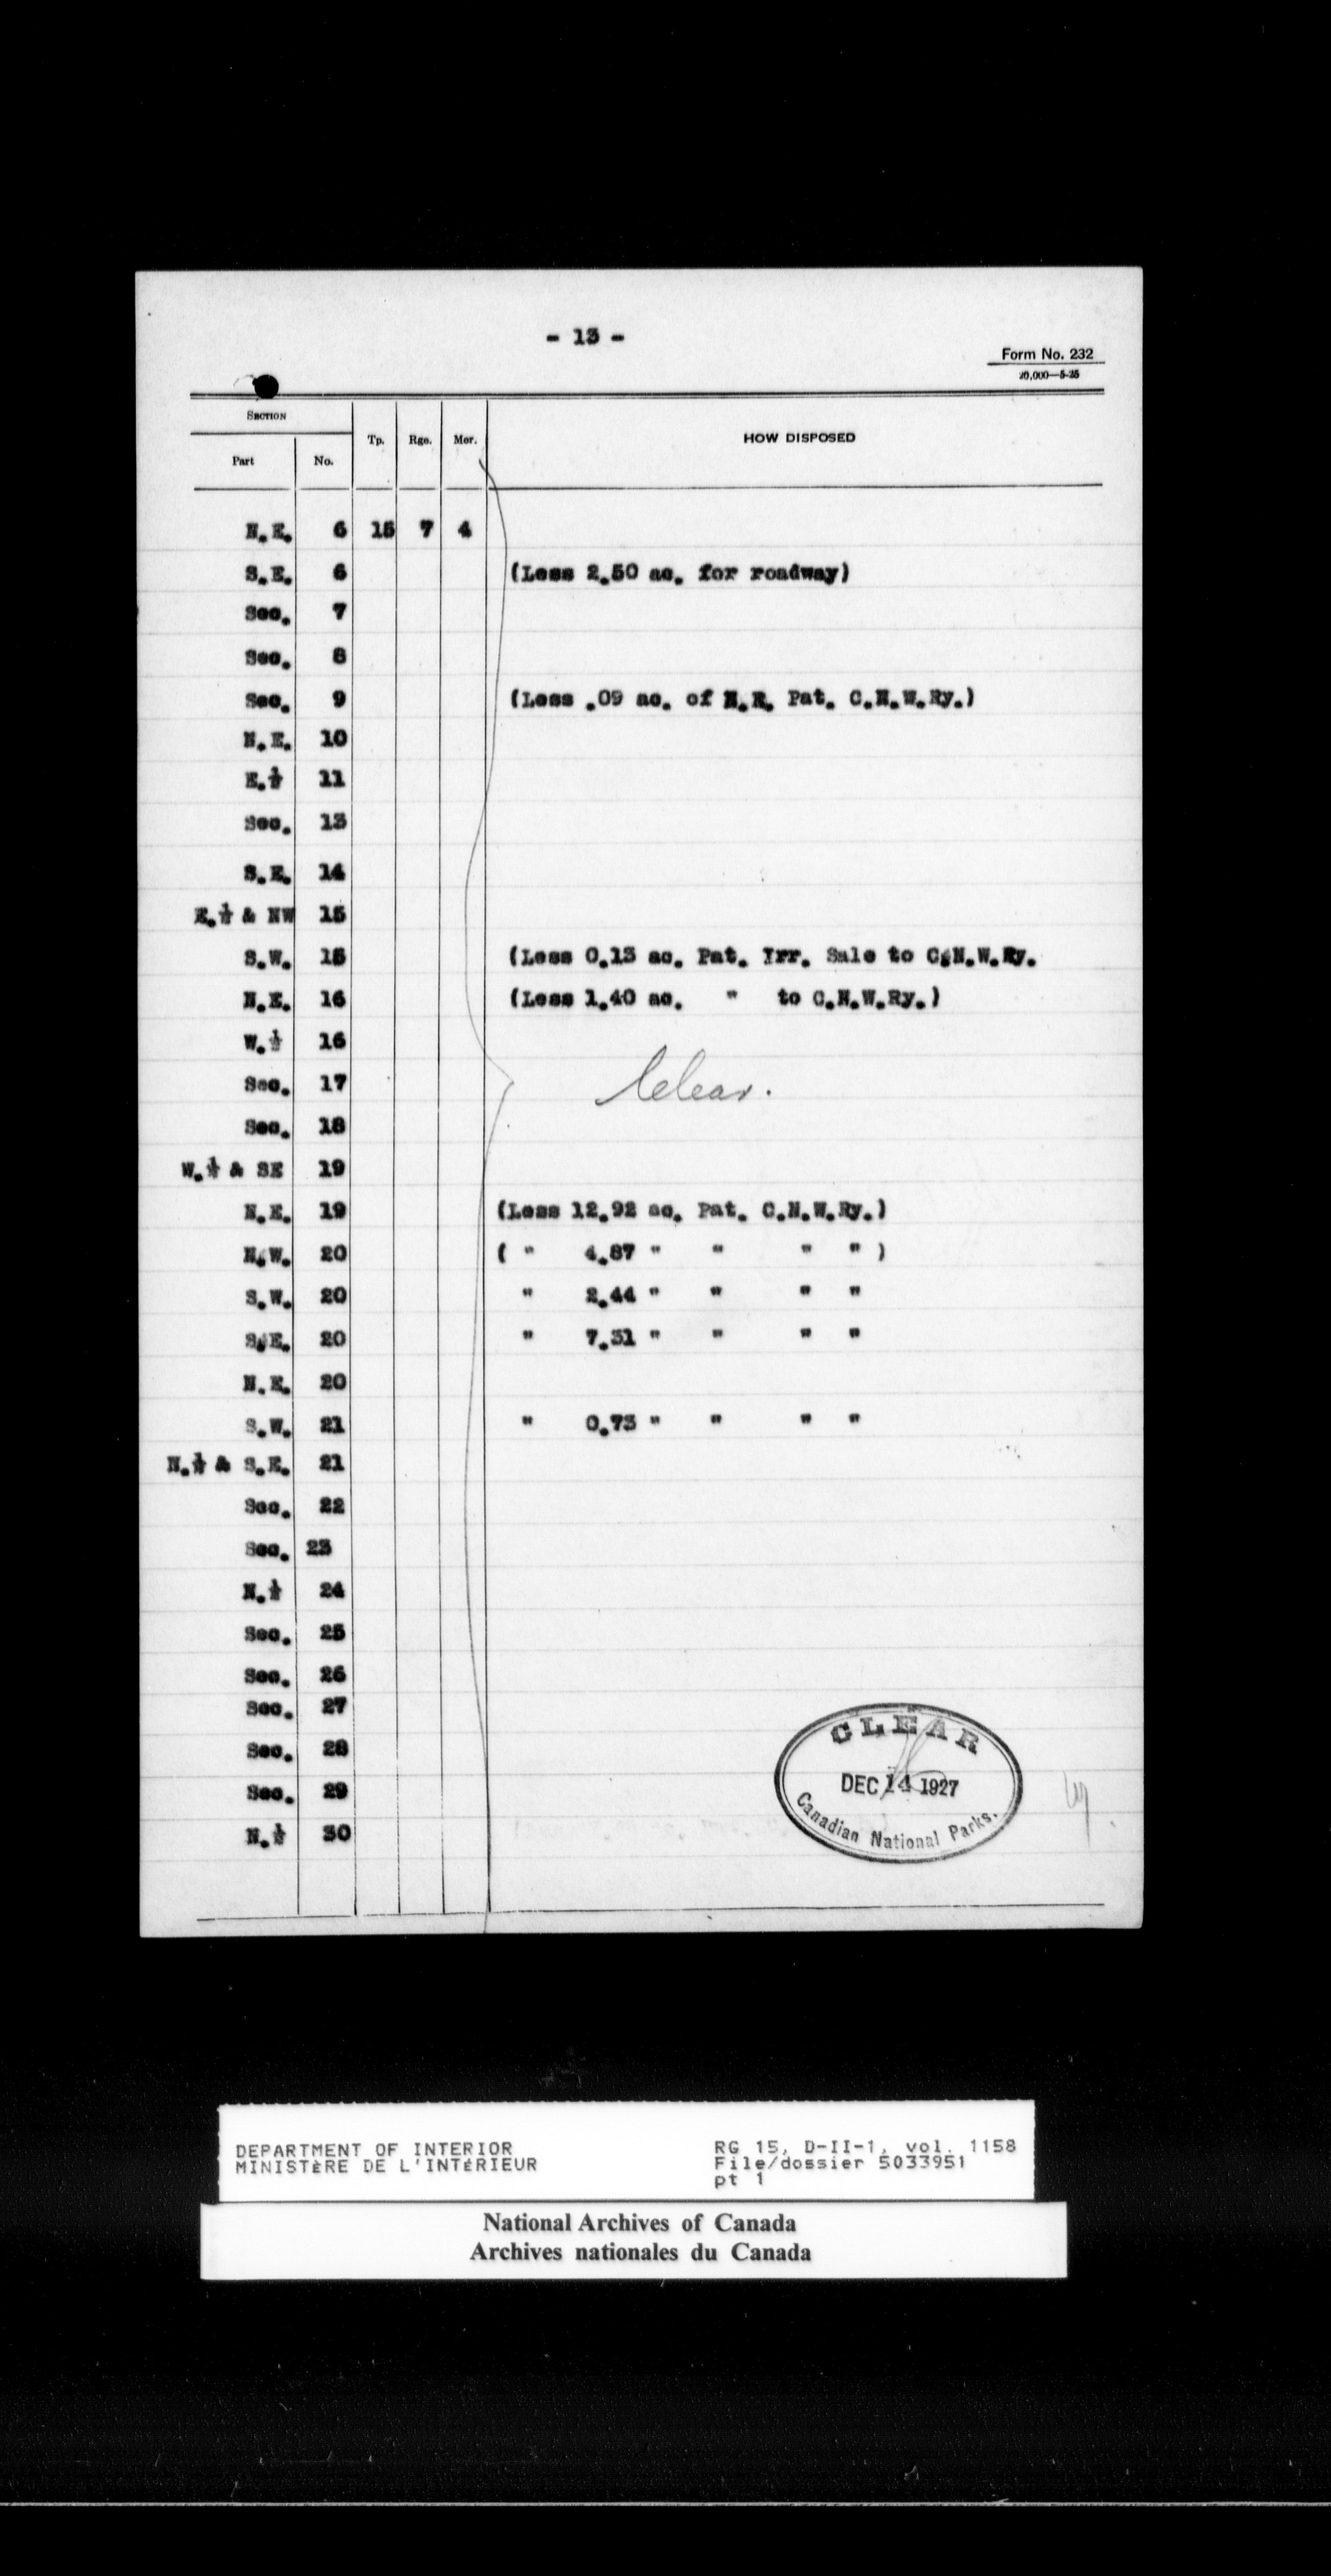 - 13 -
Form No. 232
20,000—5-25
SECTION
Part No. Tp. Rge. Mer. HOW DISPOSED
N.E. 6 15 7 4
S.E. 6 (Less 2.50 ac. for roadway)
Sec. 7
Sec. 8
Sec. 9 (Less .09 ac. of N.E. Pat. C.N.W.Ry.)
N.E. 10
E.½ 11
Sec. 13
S.E. 14
E.½ & NW 15
S.W. 15 (Less 0.13 ac. Pat. Irr. Sale to C.N.W.Ry.
N.E. 16 (Less 1.40 ac. " to C.N.W.Ry.)
W.½ 16
Sec. 17 Clear.
Sec. 18
W.½ & SE 19
N.E. 19 (Less 12.92 ac. Pat. C.N.W.Ry.)
N.W. 20 ( " 4.87 " " " " )
S.W. 20 " 2.44 " " " "
S.E. 20 " 7.31 " " " "
N.E. 20
S.W. 21 " 0.73 " " " "
N.½ & S.E. 21
Sec. 22
Sec. 23
N.½ 24
Sec. 25
Sec. 26
Sec. 27
Sec. 28
Sec. 29
N.½ 30
CLEAR
DEC 14 1927
Canadian National Parks.
DEPARTMENT OF INTERIOR
MINISTÈRE DE L'INTÉRIEUR
RG 15, D-II-1, vol. 1158
File/dossier 5033951
pt 1
National Archives of Canada
Archives nationales du Canada